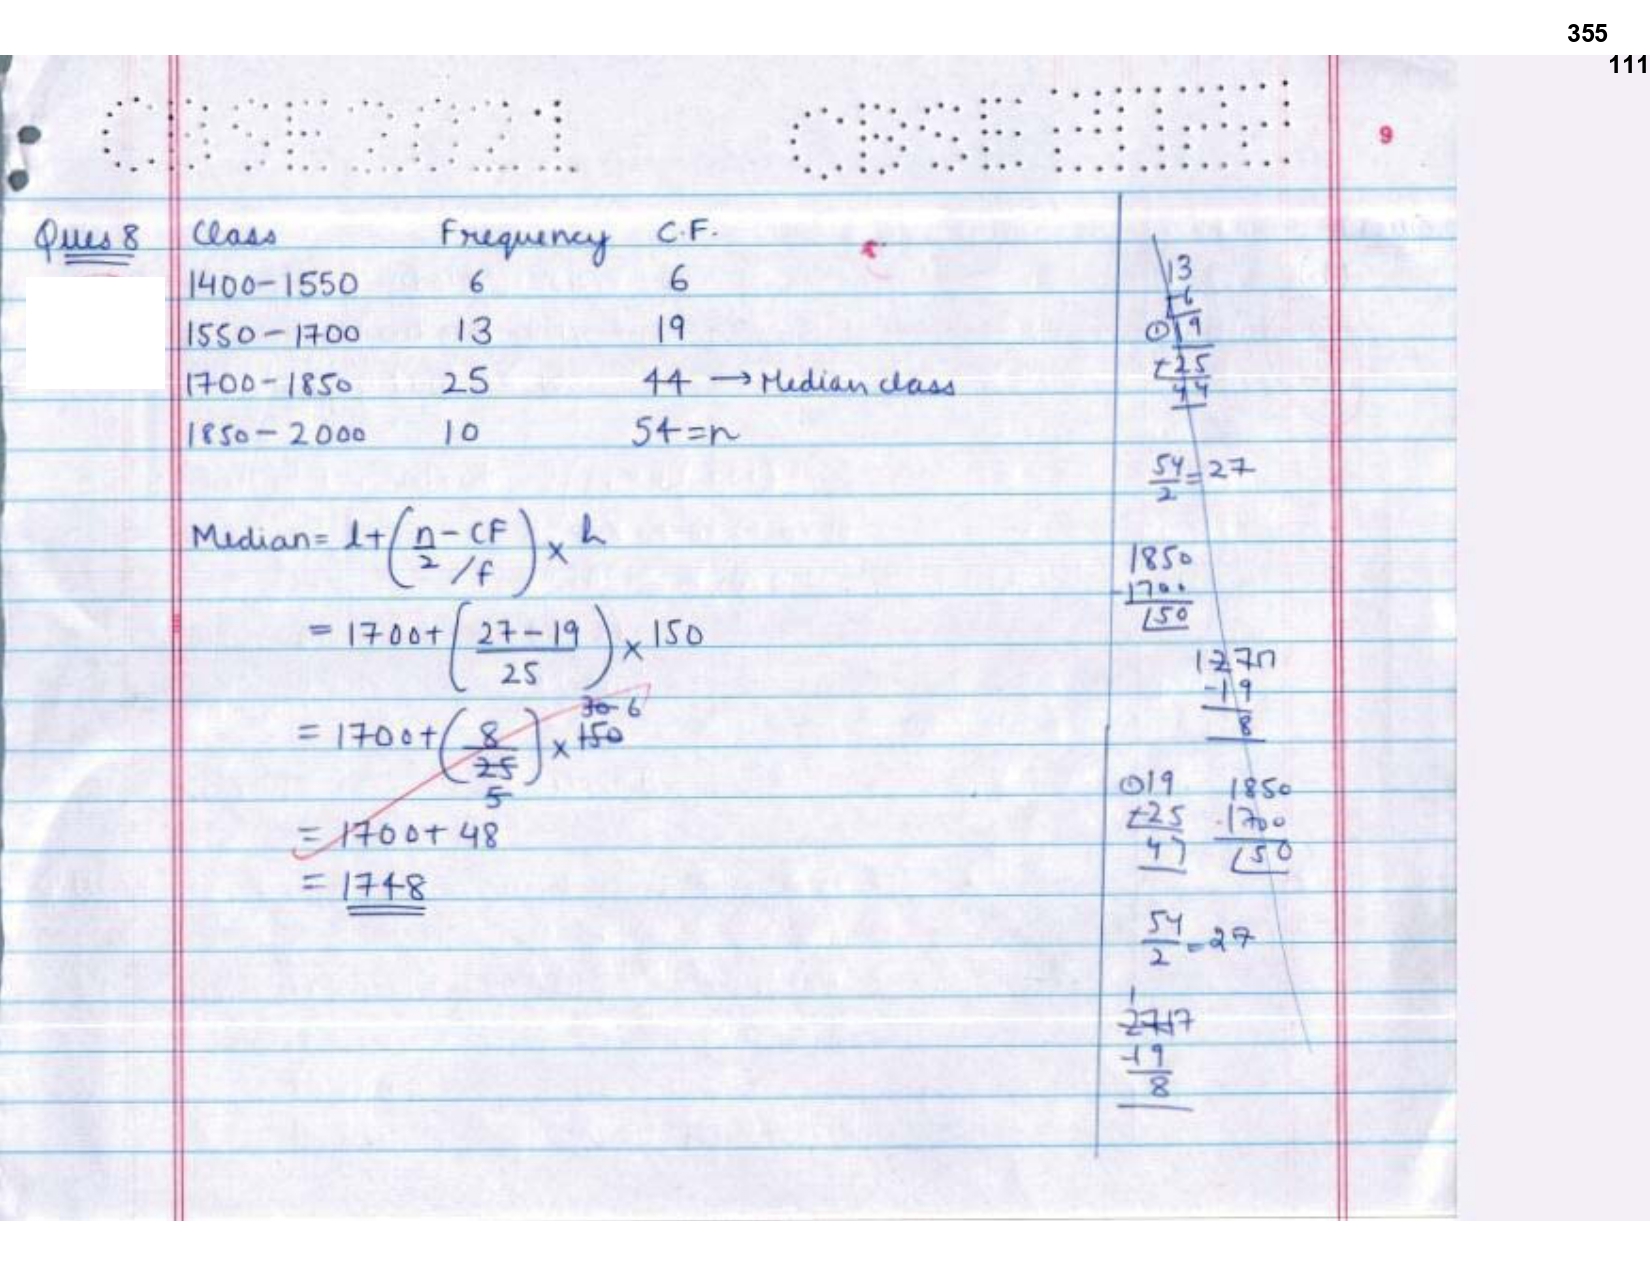 355
111
CBSE 2021
CBSE
9
Ques 8 Class Frequency C.F.
1400-1550 6 6
1550-1700 13 19
1700-1850 25 44 → Median class
1850-2000 10 54=n
Median = l+(n/2 - CF /f) × h
= 1700+(27-19/25) × 150
= 1700+(8/25) × 150
30 6
5
= 1700+48
= 1748
13
+6
①19
+25
44
54/2 = 27
1850
1700
150
-19
8
①19 1850
+25 -1700
150
54/2 = 27
1
2717
-19
8